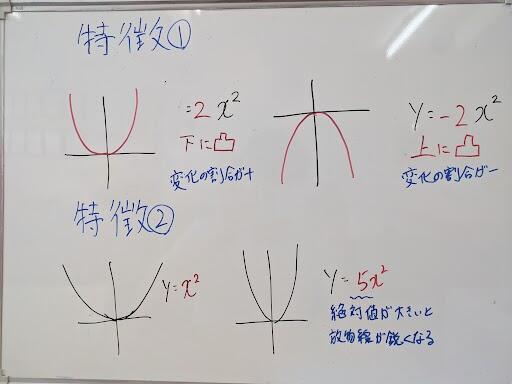 特徴①
=2x²
下に凸
変化の割合が+
y=-2x²
上に凸
変化の割合が-
特徴②
y=x²
y=5x²
絶対値が大きいと
放物線が鋭くなる